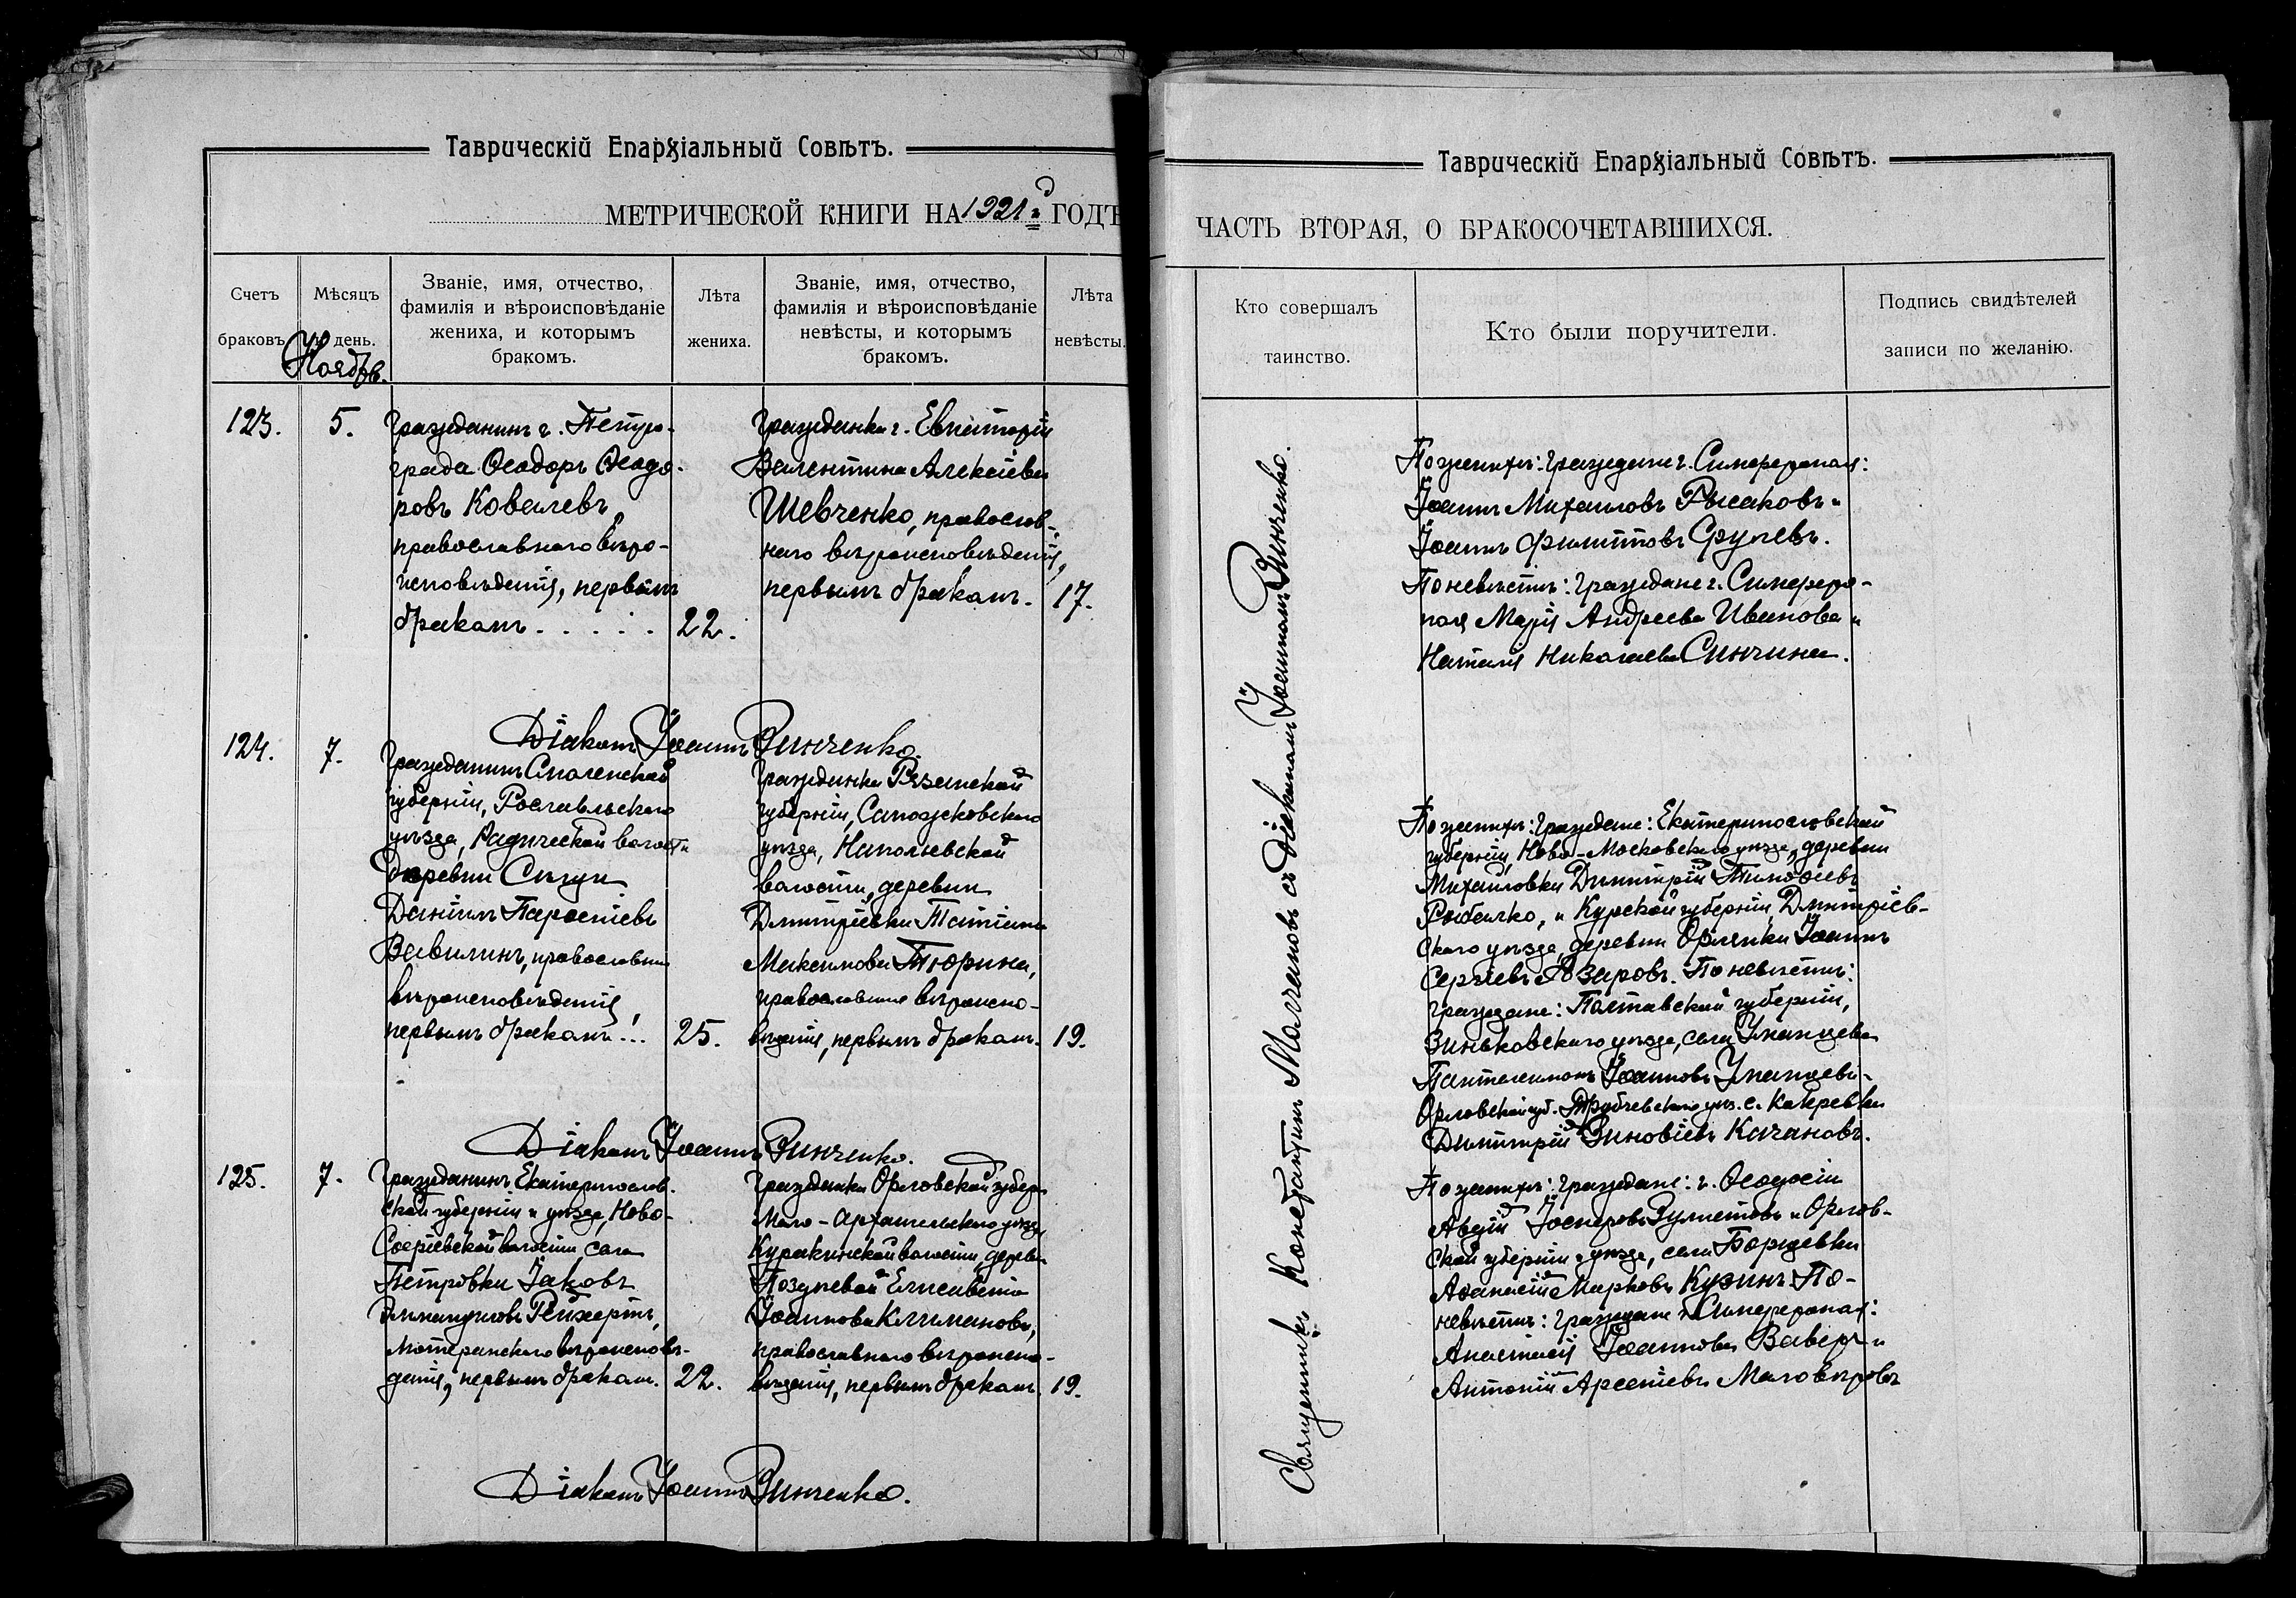 Таврическій Епархіальный Совѣтъ.
МЕТРИЧЕСКОЙ КНИГИ НА 1921 г ГОДЪ
Счетъ браковъ.
Мѣсяцъ и день.
Званіе, имя, отчество, фамилія и вѣроисповѣданіе жениха, и которымъ бракомъ.
Лѣта жениха.
Званіе, имя, отчество, фамилія и вѣроисповѣданіе невѣсты, и которымъ бракомъ.
Лѣта невѣсты.
Ноябрь.
123.
5.
Гражданинъ г. Петро-
града Ѳеодоръ Ѳеодо-
ровъ Ковалевъ,
православнаго вѣро-
исповѣданія, первымъ
бракомъ . . . . .
22.
Гражданка г. Евпаторіи
Валентина Алексѣева
Шевченко, православ-
наго вѣроисповѣданія,
первымъ бракомъ.
17.
Діаконъ Іоаннъ Зинченко.
124.
7.
Гражданинъ Смоленской
губерніи, Рославльскаго
уѣзда, Радичской волости
деревни
Даніилъ
Вавилинъ, православнаго
вѣроисповѣданія,
первымъ бракомъ...
25.
Гражданка Рязанской
губерніи, Сапожковскаго
уѣзда, Напольевской
волости, деревни
Дмитріевки Татіана
Максимова Тюрина,
православнаго вѣроиспо-
вѣданія, первымъ бракомъ.
19.
Діаконъ Іоаннъ Зинченко.
125.
7.
Гражданинъ Екатеринослав-
ской губерніи и уѣзда, Ново-
Софіевской волости, села
Петровки Іаковъ
Рейхертъ,
лютеранскаго вѣроисповѣ-
данія, первымъ бракомъ.
22.
Гражданка Орловской губер.
Мало-Архангельскаго уѣзда
Куракинской волости, дерев.
Елисавета
Іоаннова Климанова,
православнаго вѣроиспо-
вѣданія, первымъ бракомъ.
19.
Діаконъ Іоаннъ Зинченко.
Таврическій Епархіальный Совѣтъ.
ЧАСТЬ ВТОРАЯ, О БРАКОСОЧЕТАВШИХСЯ.
Кто совершалъ таинство.
Кто были поручители.
Подпись свидѣтелей записи по желанію.
Священникъ Константинъ Молчановъ съ діакономъ Іоанномъ Зинченко.
По женихѣ: граждане г. Симферополя:
Іоаннъ Михаиловъ Рысаковъ и
Іоаннъ Филипповъ
По невѣстѣ: граждане г. Симферо-
поля Марія Андреева Иванова и
Наталія Николаева Синчина.
По женихѣ: граждане: Екатеринославской
губерніи, Ново-Московскаго уѣзда, деревни
Михайловки Димитрій Тимоѳеевъ
Рыбалко, и Курской губерніи, Дмитріев-
скаго уѣзда, деревни Орлянки Іоаннъ
Сергіевъ Азаровъ. По невѣстѣ:
граждане: Полтавской губерніи,
Зиньковскаго уѣзда, села Уманцева
Пантелеимонъ Іоанновъ Уманцевъ-
Орловской губ. Трубчевскаго уѣз. с.
Димитрій Зиновіевъ Качановъ.
По женихѣ: граждане: г. Ѳеодосіи
Авдій и Орлов-
ской губерніи и уѣзда, села Борщевки
Аѳанасій Марковъ Кузинъ. По
невѣстѣ: граждане г. Симферополя:
Анастасія Іоаннова Ваверъ и
Антоній Арсеніевъ Маловѣровъ